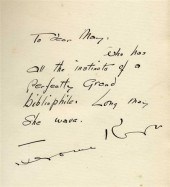 To dear May.
who has
all the instincts of a
Perfectly Grand
bibliophile. Long may
She wave.
Jerome Kern